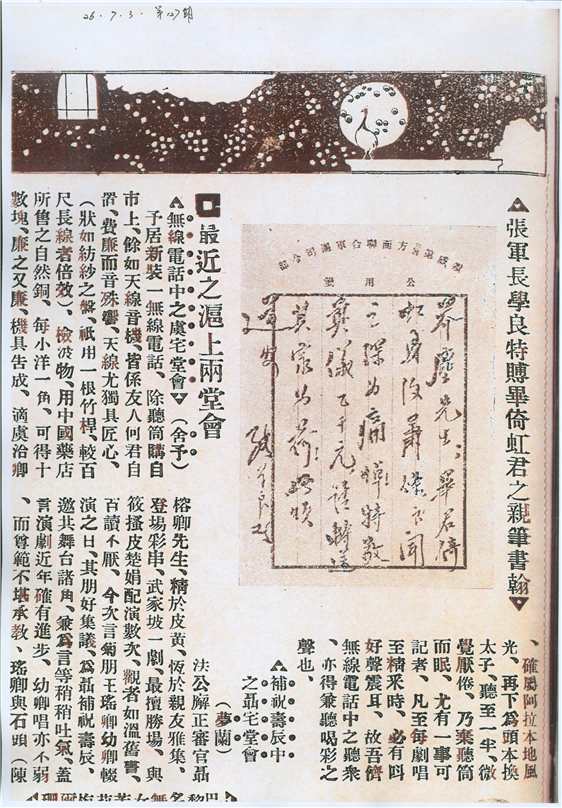 26.7.3. 第127期
▲張軍長學良特賻畢倚虹君之親筆書翰▼
方面聯合軍團司令部
公用箋
芥塵先生、畢君倚
虹身後蕭條、聞
之深為痛悼、特致
奠儀弍千元、請轉送
其家為荷、此頌
著安
張學良
最近之滬上兩堂會
▲無線電話中之虞宅堂會▼（舍予）
予居新裝一無線電話、除聽筒購自
市上、餘如天線音機、皆係友人何君自
置、費廉而音殊響、天線尤獨具匠心、
（狀如紡紗之盤、祇用一根竹桿、較百
尺長線者倍效）、檢波物、用中國藥店
所售之自然銅、每小洋一角、可得十
數塊、廉之又廉、機具告成、適虞洽卿
、確屬阿拉本地風
光、再下爲頭本換
太子、聽至一半、微
覺厭倦、乃棄聽筒
而眠、尤有一事可
記者、凡至每劇唱
至精釆時、必有呌
好聲震耳、故吾儕
無線電話中之聽衆
、亦得兼聽喝彩之
聲也、
▲補祝壽辰中
之聶宅堂會▼
（夢蘭）
法公廨正審官聶
榕卿先生、精於皮黃、恆於親友雅集、
登場彩串、武家坡一劇、最擅勝場、與
筱搔皮楚娟配演數次、觀者如溫舊書、
百讀不厭、今次言菊朋王瑤卿幼卿輟
演之日、其朋好集議、爲聶補祝壽辰、
邀共舞台諸角、兼爲言等稍稍吐氣、蓋
言演劇近年確有進步、幼卿唱亦不弱
、而尊範不堪承教、瑤卿與石頭（陳